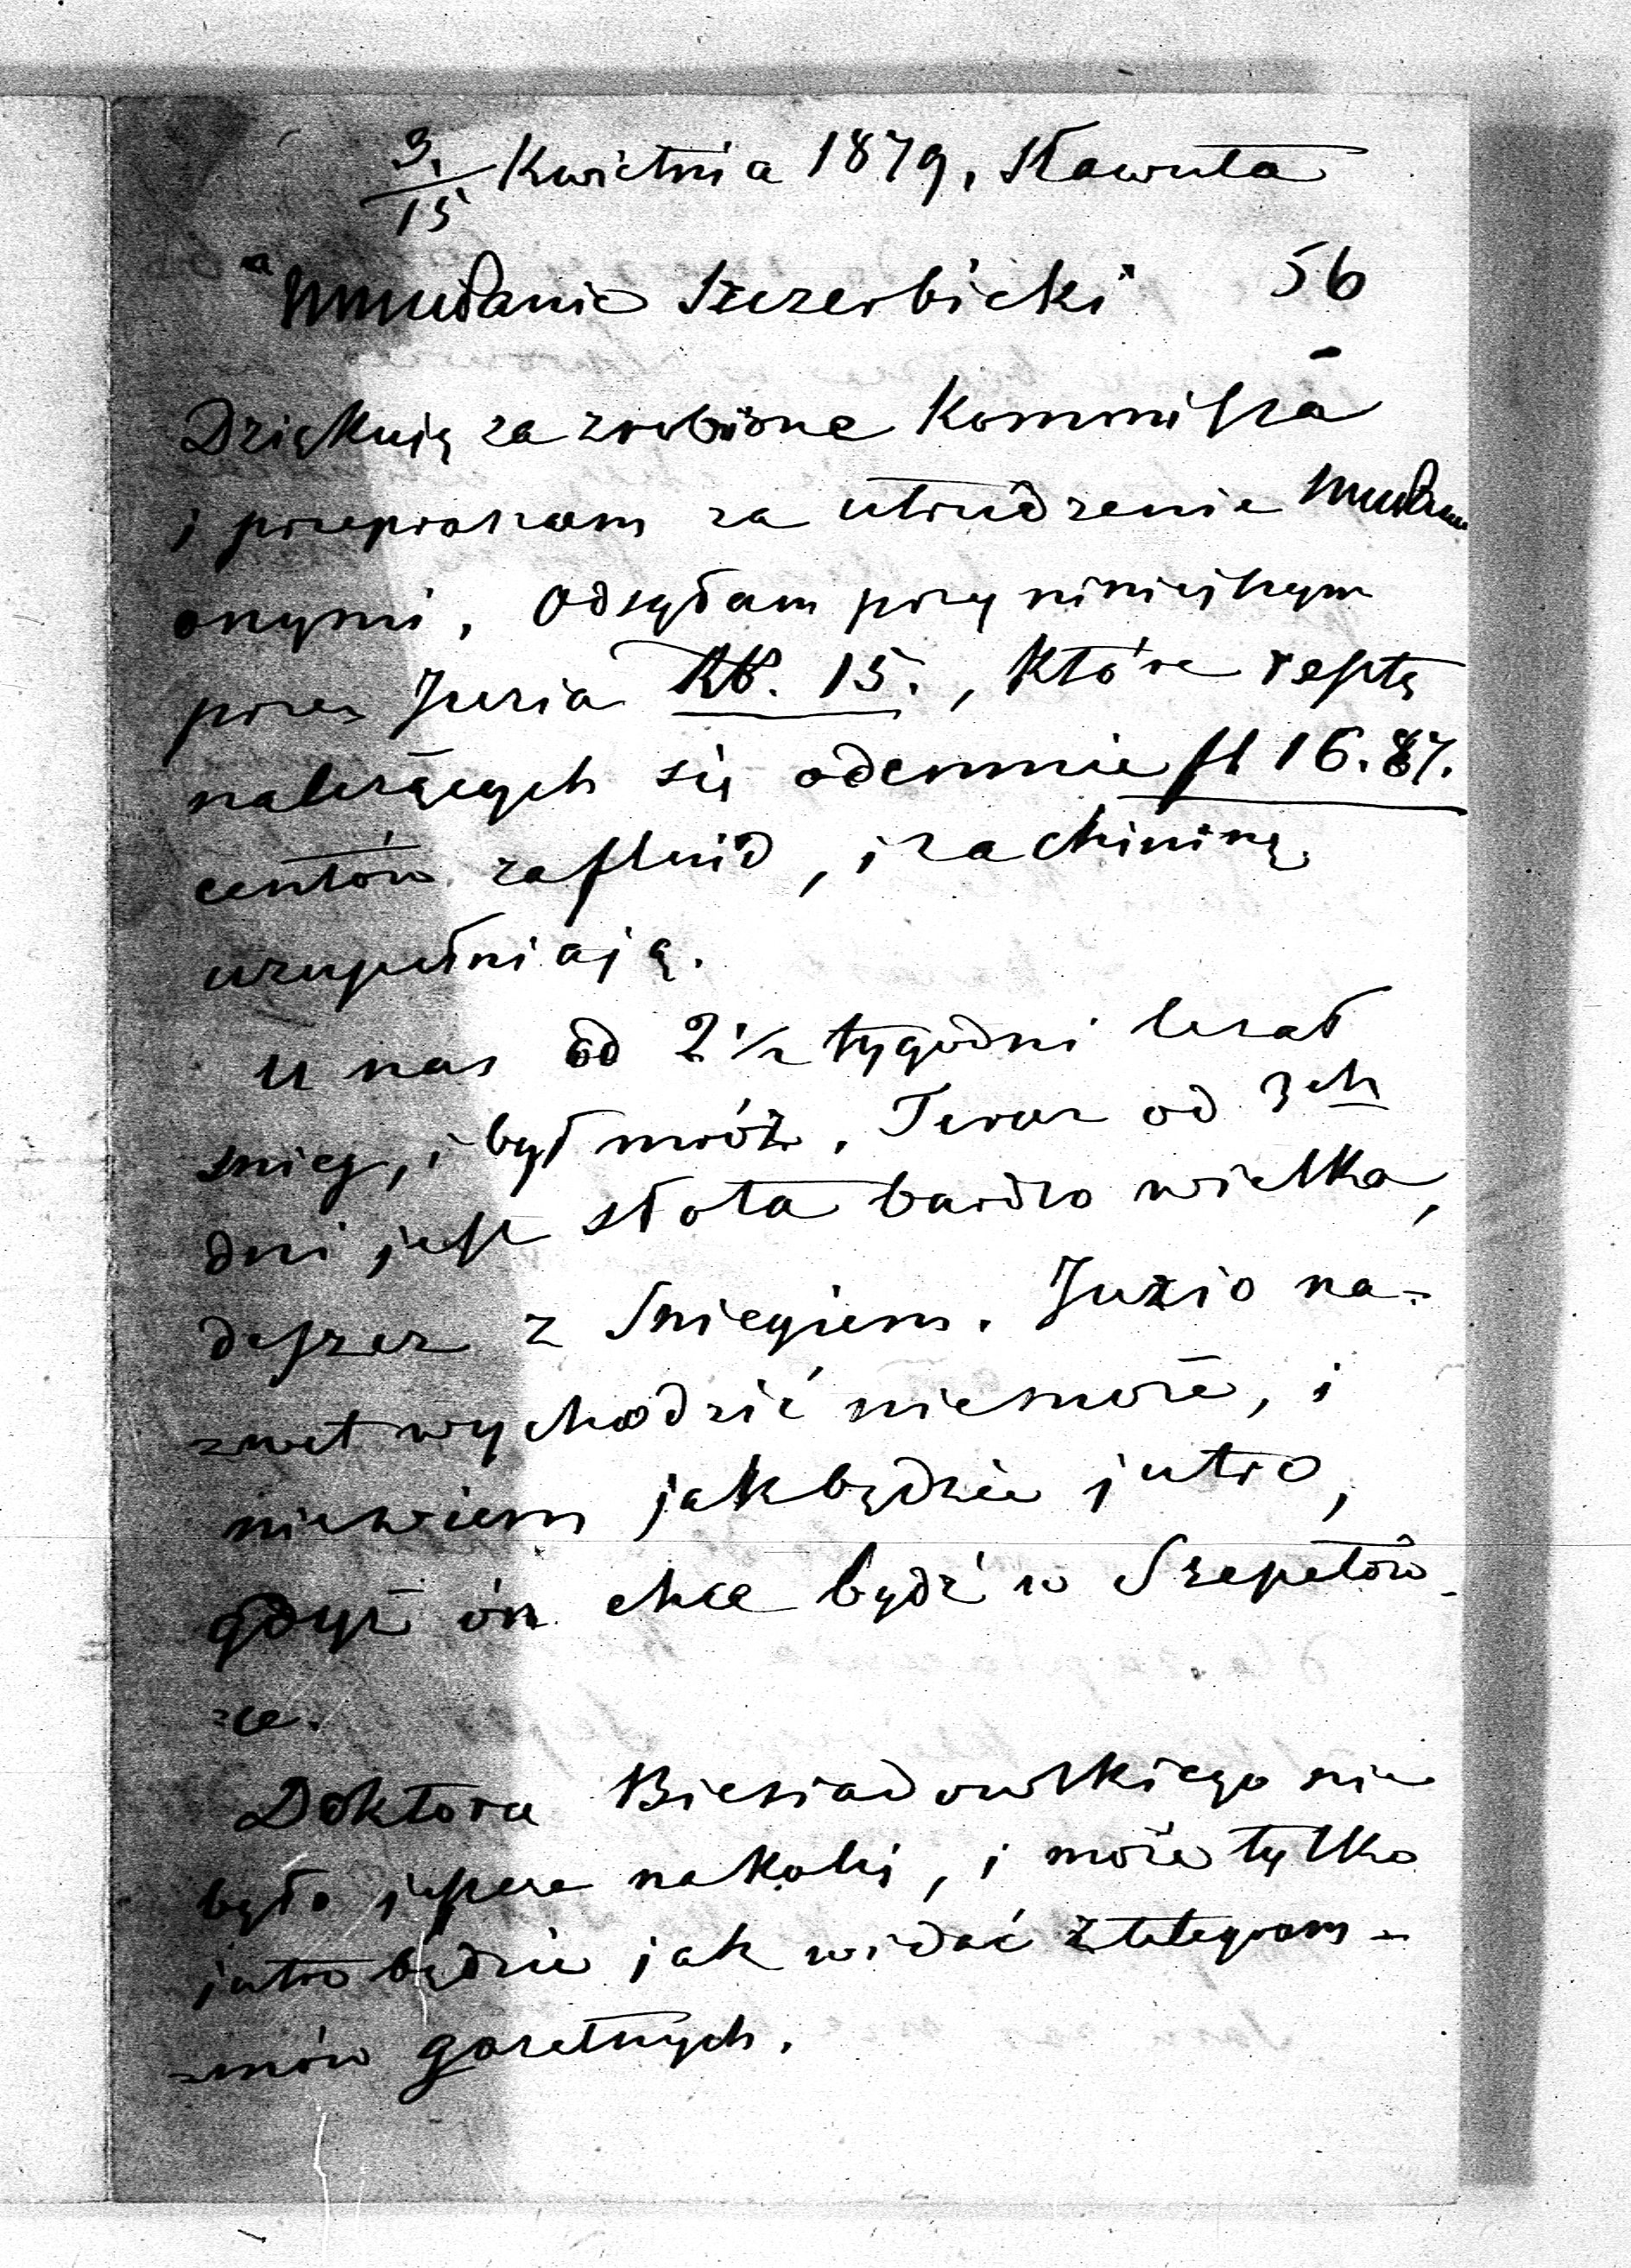 3./15 Kwietnia 1879, Sławuta
Mmudanie Szczerbicki 56
Dziękuję za zrobione Kommissa
i przepraszam za utrudzenie
onymi, Odsyłam przy niniejszym
przez Juzia Rb. 15., które resztę
należących się odemnie fl 16.87.
centów za fluid, i za chininę
uzupełniają.
U nas od 2 1/2 tygodni leżał
snieg, i był mróz. Teraz od 3ch
dni jest słota bardzo wielka,
deszcz z Sniegiem. Juzio na-
=wet wychodzić niemoże, i
niewiem jak będzie jutro,
gdyż ón chce bydź w Szepetów-
=ce.
Doktora Biesiadowskiego nie
było jeszcze na kolei, i może tylko
jutro będzie jak widać z telegram=
=mów gazetnych.